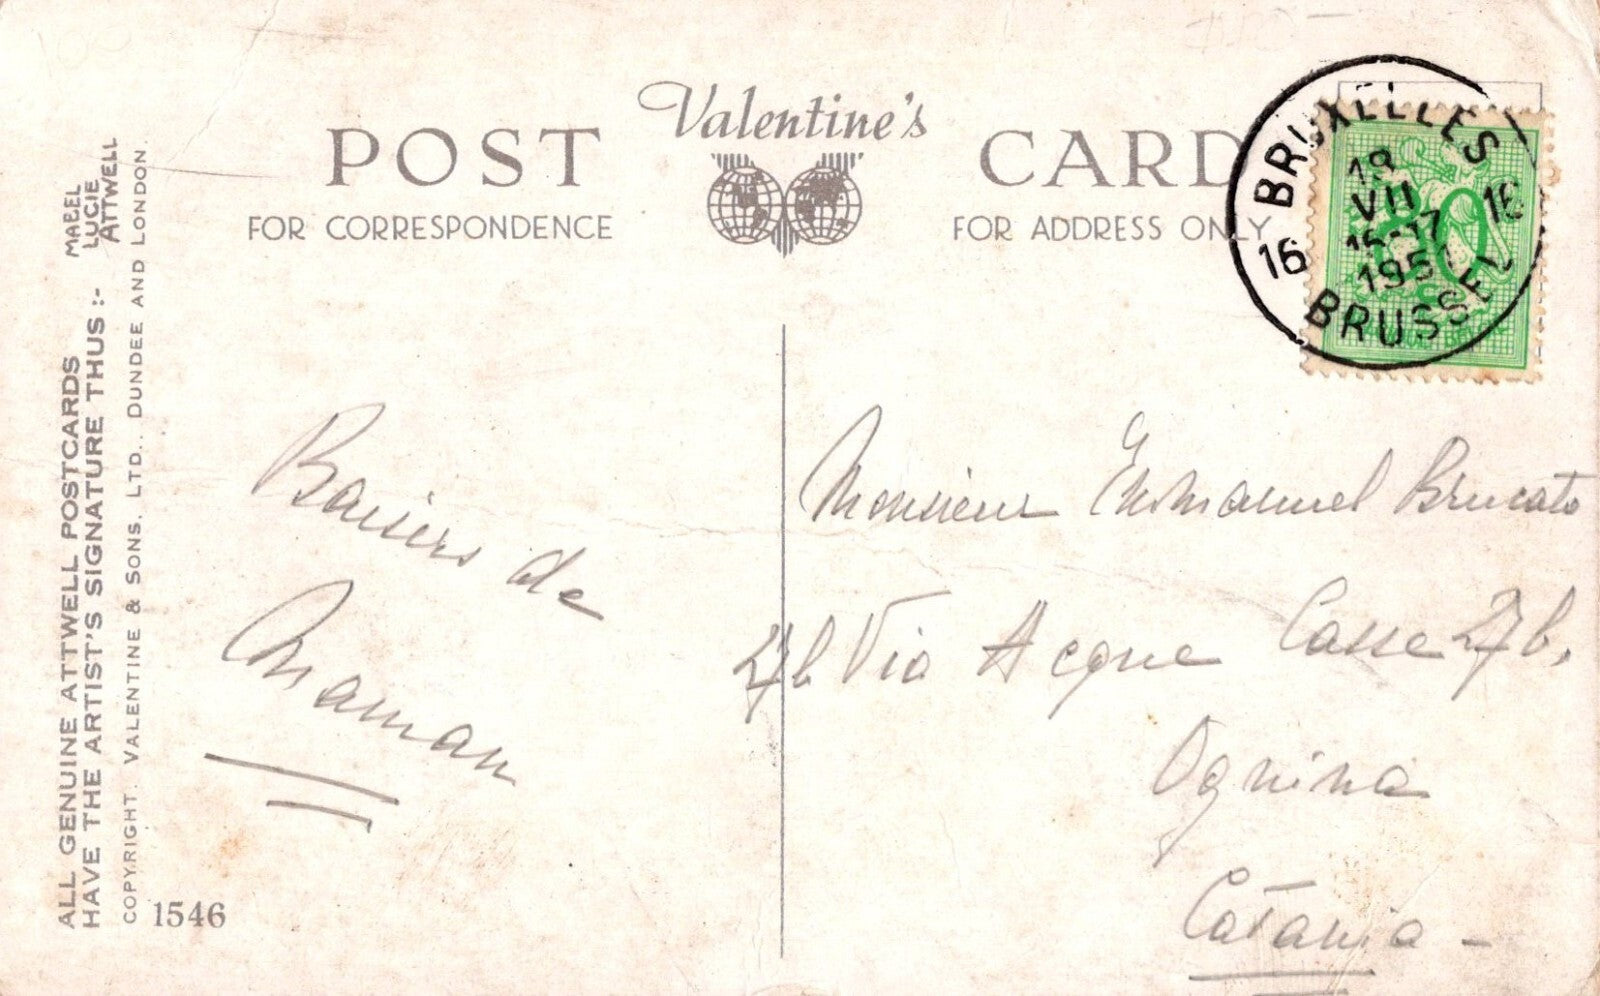 Valentine's
POST CARD
FOR CORRESPONDENCE
FOR ADDRESS ONLY
BRUXELLES
16 16
VII
16-17
195
BRUSSEL
80
MABEL
LUCIE
ATTWELL
ALL GENUINE ATTWELL POSTCARDS
HAVE THE ARTIST'S SIGNATURE THUS :-
COPYRIGHT. VALENTINE & SONS, LTD., DUNDEE AND LONDON.
1546
Baisers de
Maman
Monsieur Emmanuel Brucato
27b Via Acque Casse 27b,
Ognina
Catania -